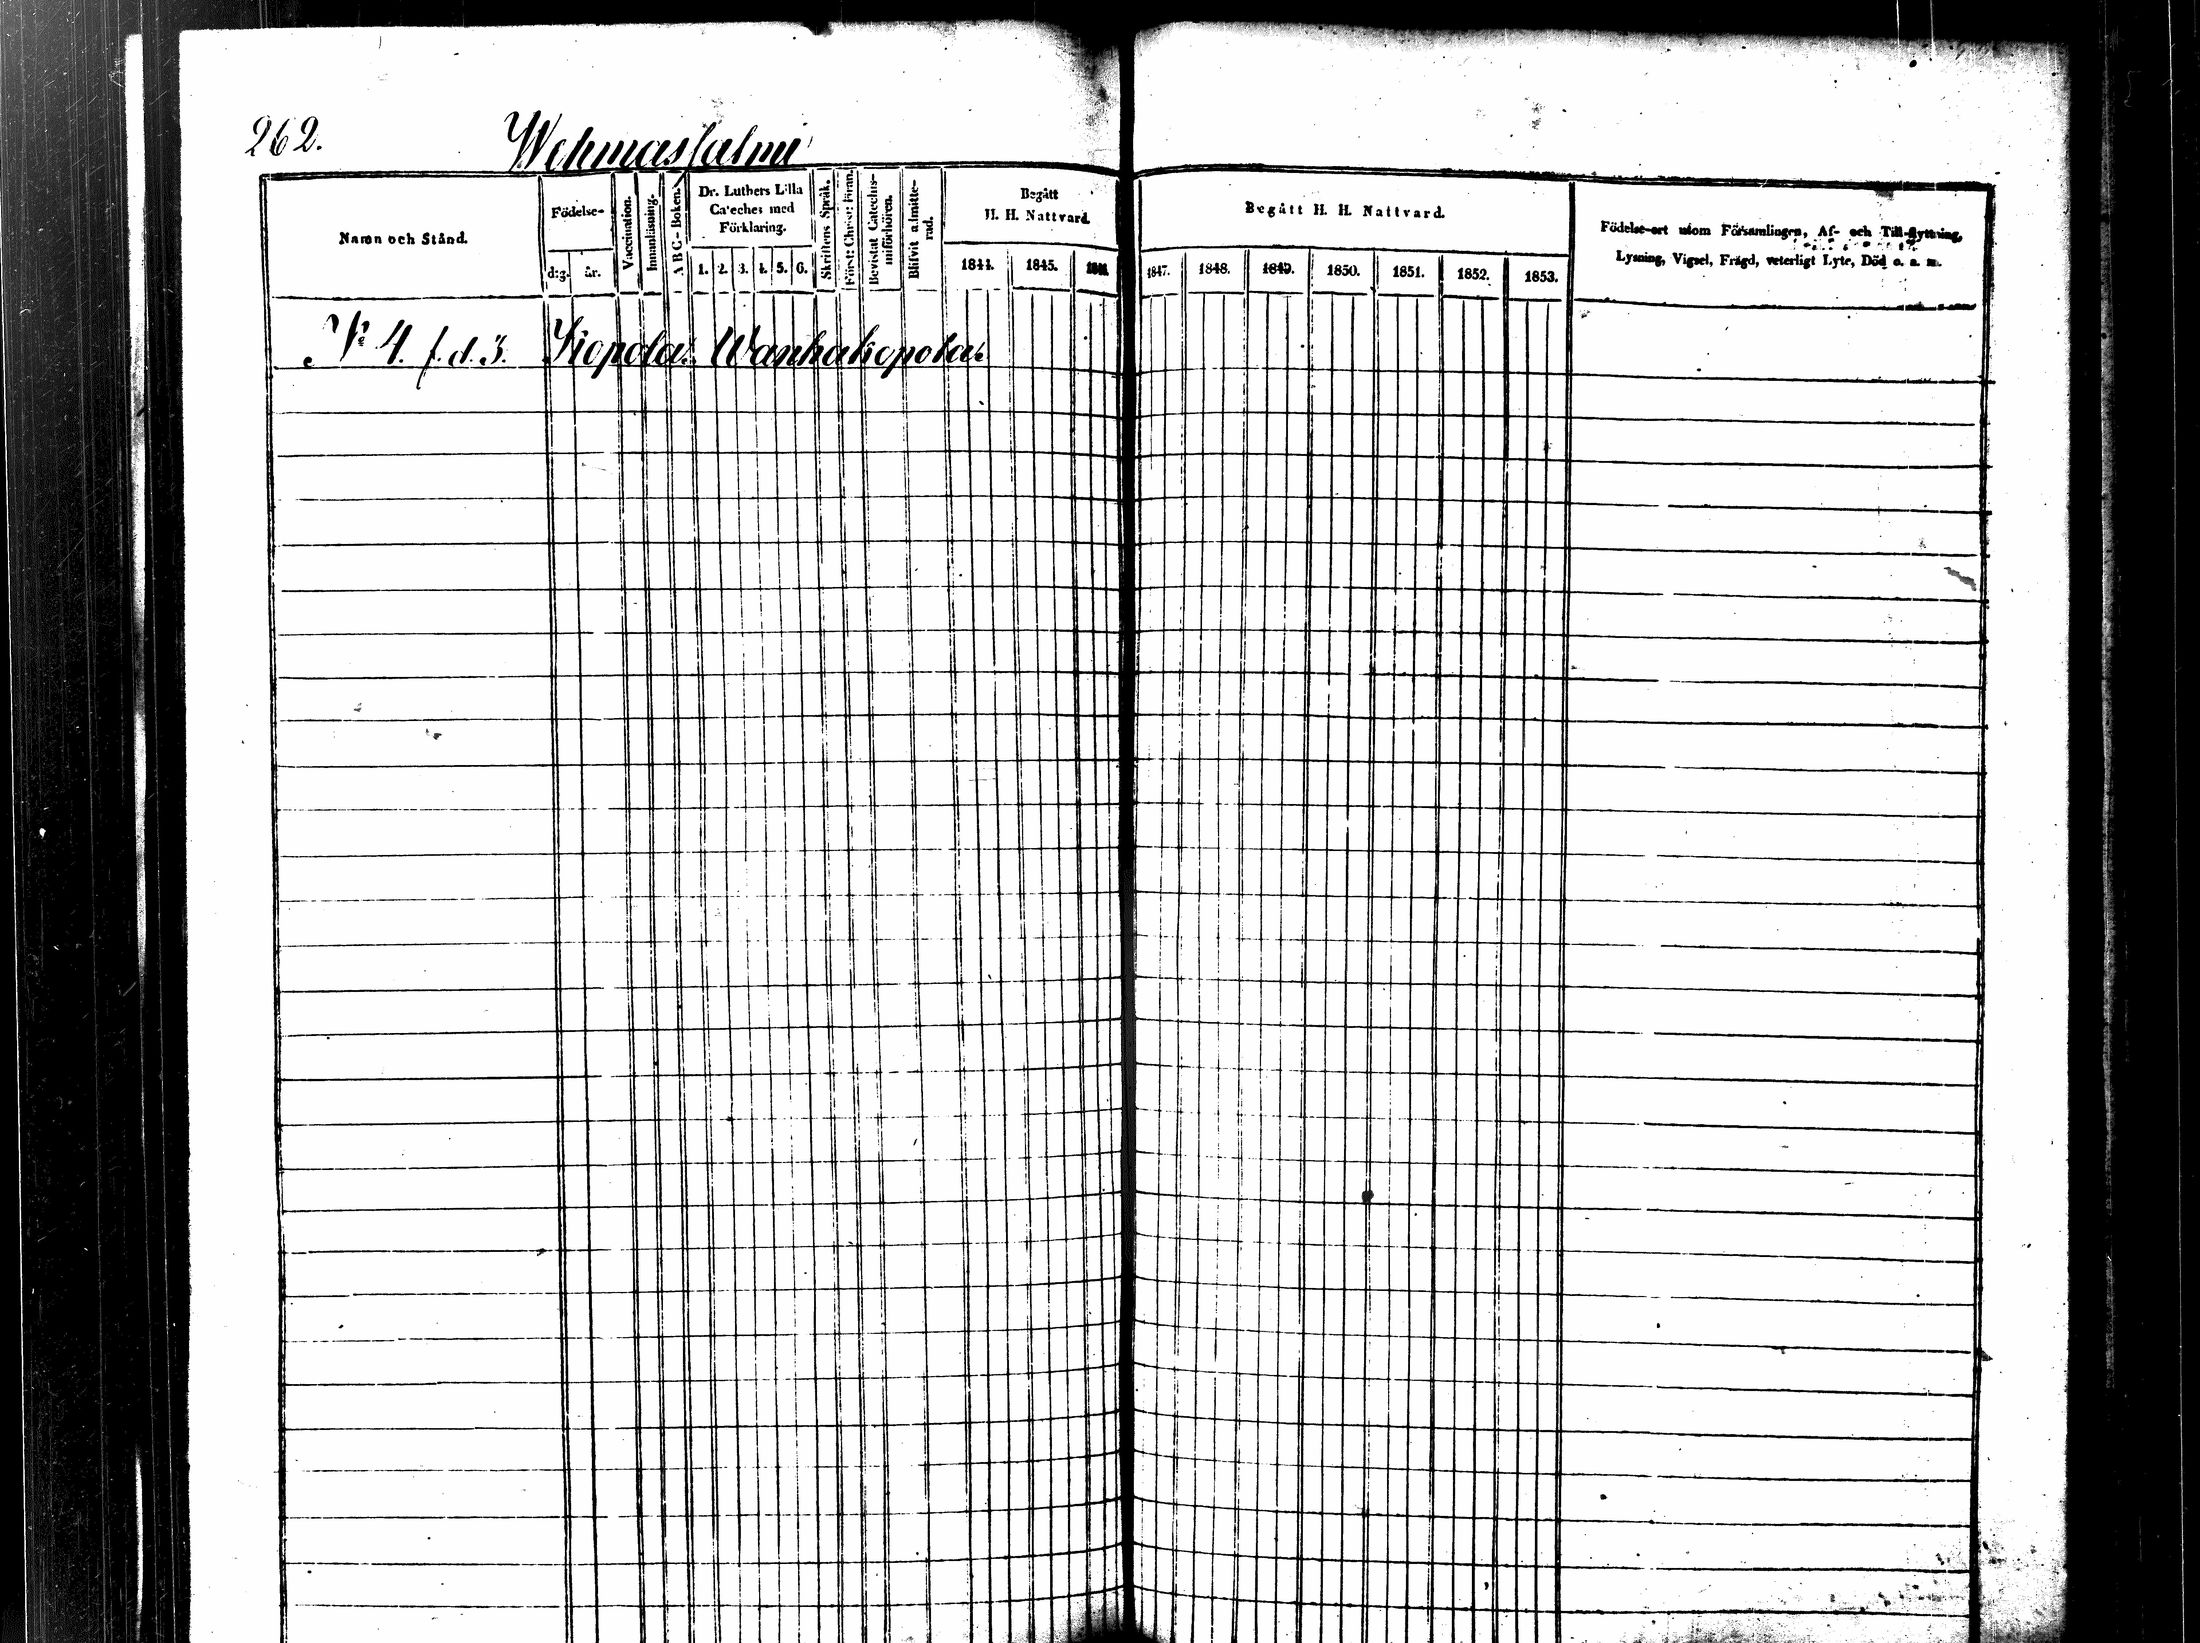 262.
Wehmassalmi
Namn och Stånd.
Födelse-
dag.
år.
Vaccination.
Innanläsning.
A B C-Boken.
Dr. Luthers Lilla
Cateches med
Förklaring.
1. 2. 3. 4. 5. 6.
Skriftens Språk.
Först: Christ: Föran.
Bevistat Catechis-
miförhören.
Blifvit admitte-
rad.
Begått
H. H. Nattvard.
1844. 1845. 1846.
Begått H. H. Nattvard.
1847. 1848. 1849. 1850. 1851. 1852. 1853.
Födelse-ort utom Församlingen, Af- och Till-flyttning,
Lysning, Vigsel, Frägd, veterligt Lyte, Död o. a. m.
No 4. f. d. 3. Kopola: Wanhakopola: